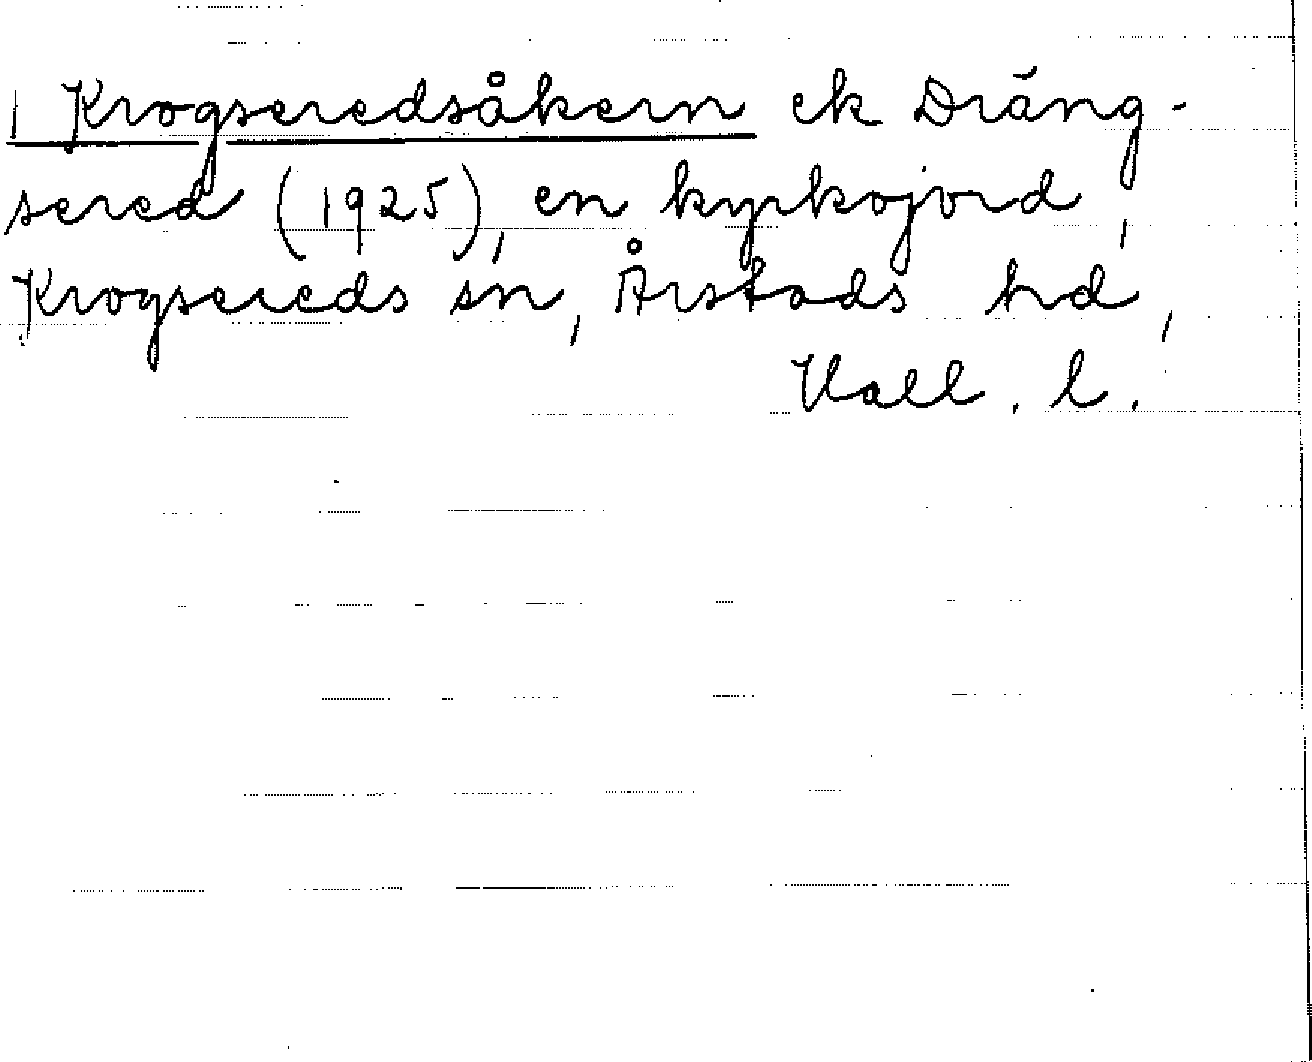 1 Krogseredsåkern ek Dräng-
sered (1925), en kyrkojord,
Krogsereds sn, Årstads hd,
Hall. l.